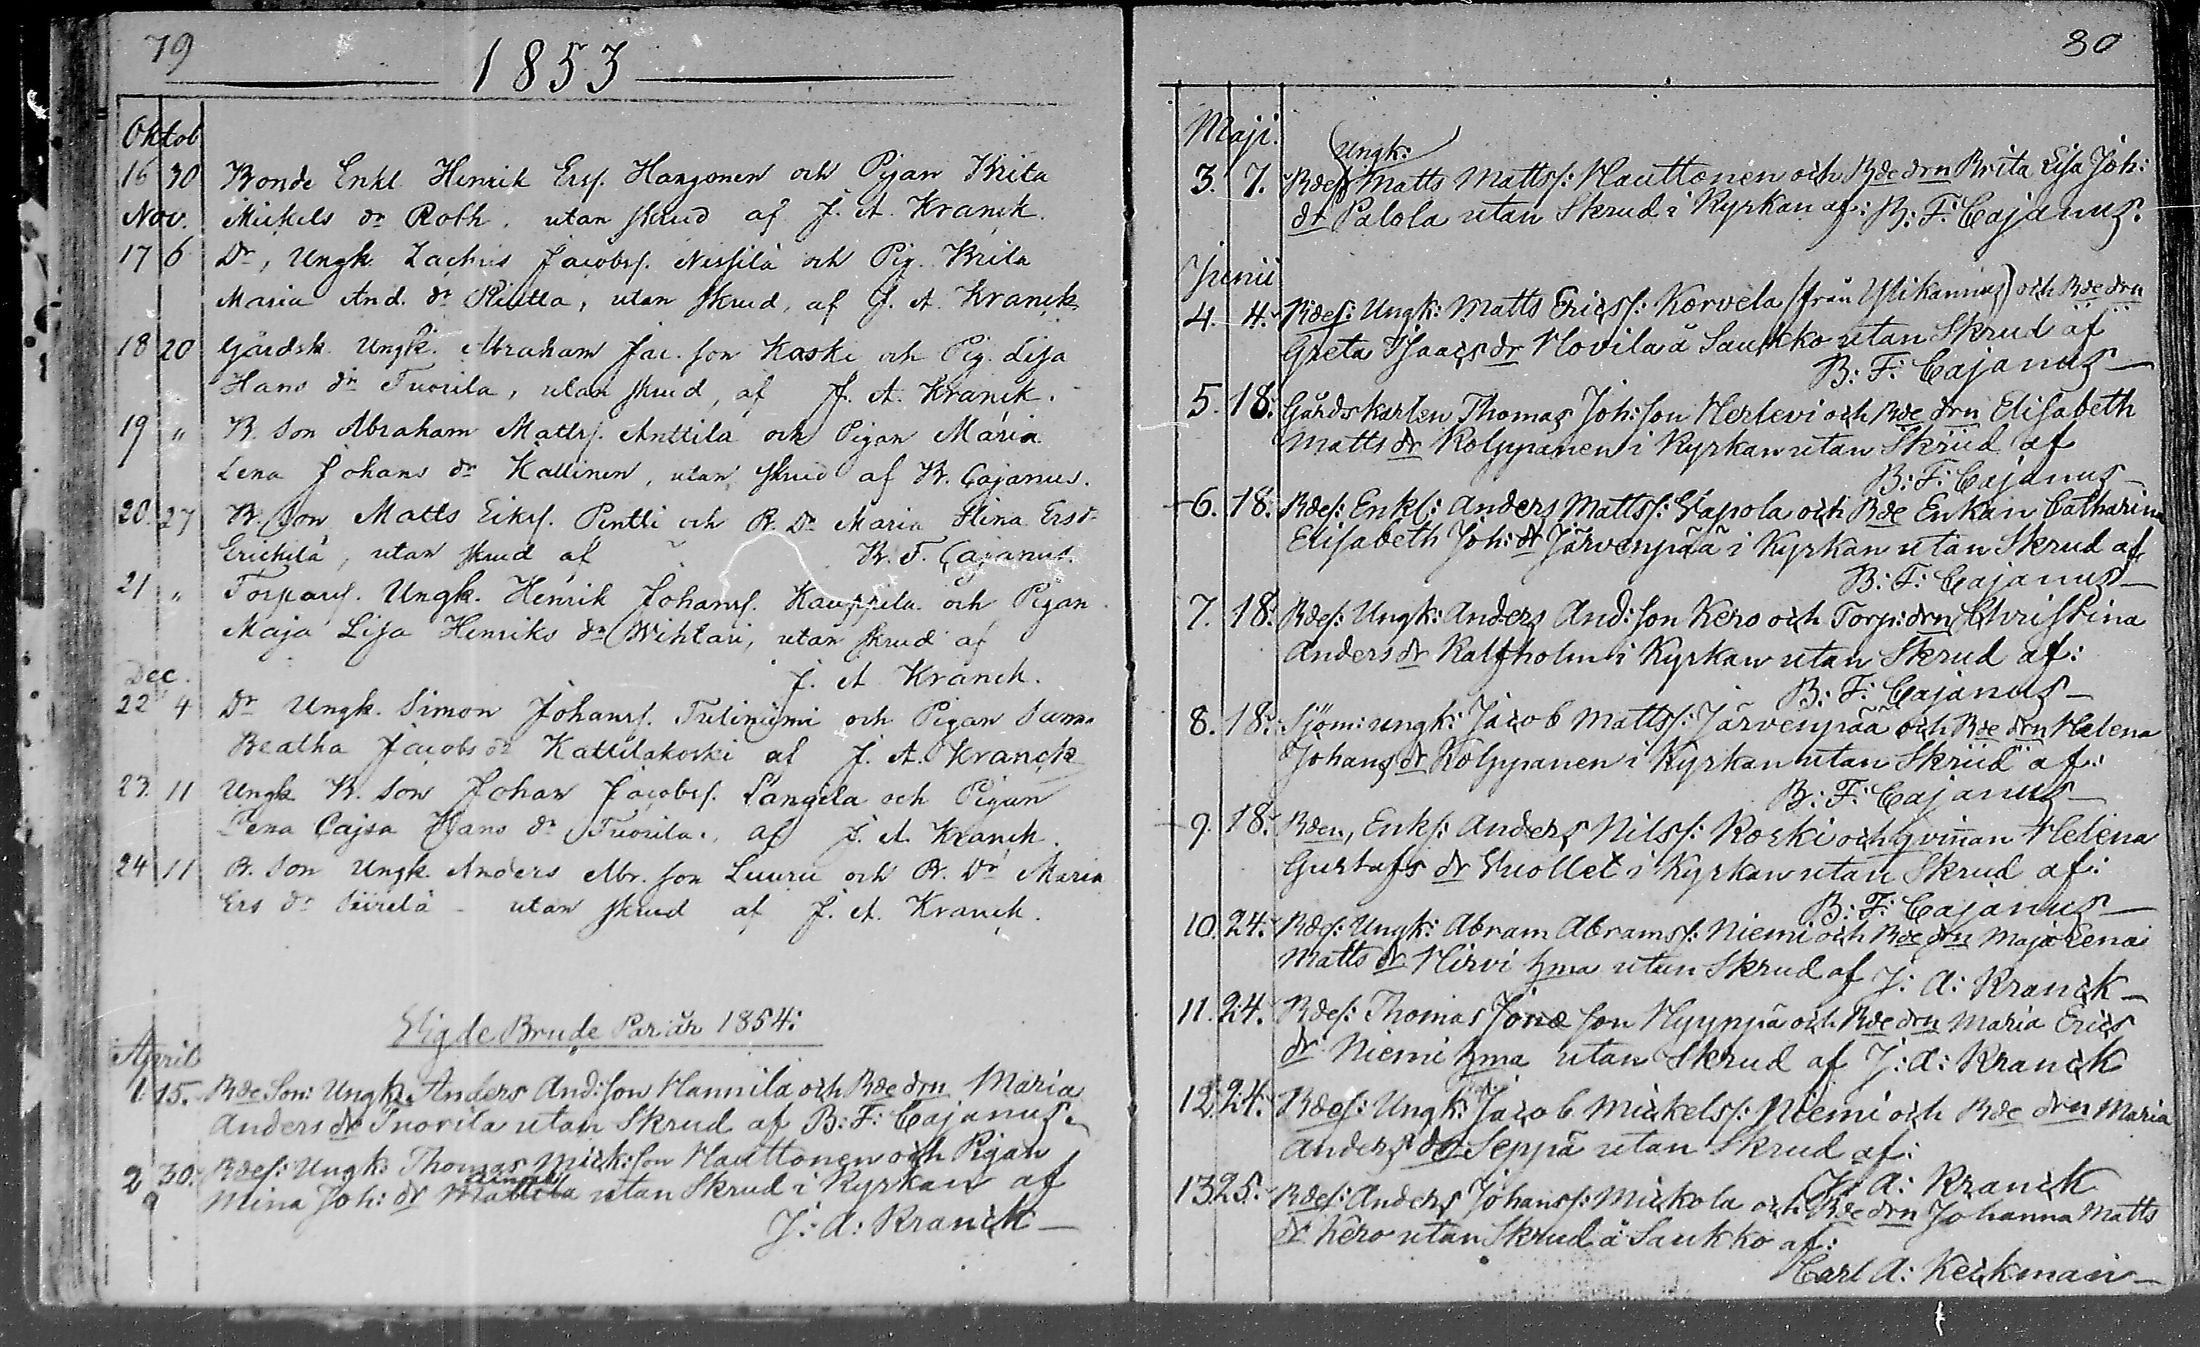 79
1853
Oktob
16 30 Bonde Enkl. Henrik Ersſ. Hangonen och Pigan Brita
Nov. Mickels dr Roth, utan skrud af J. A. Kranck.
17 6 Dr, Ungk. Zachris Jacobsſ. Nissilä och Pig. Brita
Maria And. dr Rintta, utan skrud, af J. A. Kranck.
18 20 Gårdsk. Ungk. Abraham Jac. son Kaski och Pig. Lisa
Hans dr Tuorila, utan skrud, af J. A. Kranck.
19 " B. Son Abraham Mattsſ. Anttila och Pigan Maria
Lena Johans dr Kallinen, utan skrud af B. Cajanus.
20. 27 B. Son Matts Eriksſ. Pentti och B. Dr Maria Stina Ersd-
Erickilä, utan skrud af B. F. Cajanus.
21 " Torparſ. Ungk. Henrik Johansſ. Kauppila och Pigan
Maja Lisa Henriks dr Wihtari, utan skrud af
Dec. J. A Kranck.
22 4 Dr Ungk. Simon Johansſ. Tuliniemi och Pigan Sanna
Beatha Jacobs dr Kattilakoski af J. A. Kranck
23. 11 Ungk B. Son Johan Jacobsſ. Längelä och Pigan
Lena Cajsa Hans dr Tuorila, af J. A. Kranck.
24 11 B. Son Ungk. Anders Abr. son Luuru och B. Dr Maria
Ers dr Siirilä - utan skrud af J. A. Kranck.
Vigde Brude Par år 1854:
April
1. 15. Bde Son: Ungk: Anders And: son Hannila och Bde drn Maria
Anders dr Tuorila utan Skrud af B: F: Cajanus.
2 30. Bdeſ: Ungk: Thomas Mick: son Hauttonen och Pigan
Mina Joh: dr utan Skrud i Kyrkan af
J: A: Kranck—
80
Maji.
Ungk:
3. 7. Bdeſ Matts Mattsſ: Hauttonen och Bde drn Brita Lisa Joh:
dr Palola utan Skrud i Kyrkan af: B: F: Cajanus.
Junii
4. 4. Bdeſ: Ungk: Matts Ericsſ: Korvela (från Ylikiiming) och Bde drn
Greta Isacs dr Hovila å Saukko utan Skrud af
B: F: Cajanus—
5. 18. Gårdskarlen Thomas Joh: son Herlevi och Bde drn Elisabeth
Matts dr Kolppanen i Kyrkan utan Skrud af
B: F: Cajanus—
6. 18. Bdeſ: Enkl: Anders Mattsſ: Hapola och Bde Enkan Catharina
Elisabeth Joh: dr Järvenpää i Kyrkan utan Skrud af
B: F: Cajanus—
7. 18. Bdeſ: Ungk: Anders And: son Kero och Torp: drn Christina
Anders dr Kalfholm i Kyrkan utan Skrud af:
B: F: Cajanus—
8. 18. Sjöm: ungk: Jacob Mattsſ: Järvenpää och Bde drn Helena
Johans dr Kolppanen i Kyrkan utan Skrud af:
B: F: Cajanus—
9. 18. Bden, Enkl: Anders Nilsſ: Koski och qvinnan Helena
Gustafs dr Vuollet i Kyrkan utan Skrud af:
B: F: Cajanus—
10. 24. Bdeſ: Ungk: Abram Abramsſ: Niemi och Bde drn Maja Lena
Matts dr Hirvi hma utan Skrud af J: A: Kranck—
11. 24. Bdeſ: Thomas Jonæ son Hyypiä och Bde drn Maria Erics
dr Niemi hma utan Skrud af J: A: Kranck
12. 24. Bdeſ: Ungk: Jacob Mickelsſ: Niemi och Bde drn Maria
Anders dr Seppä utan Skrud af:
J: A: Kranck
13. 25. Bdeſ: Anders Johansſ: Mickola och Bde drn Johanna Matts
dr Kero utan Skrud å Saukko af:
Carl A: Keckman—